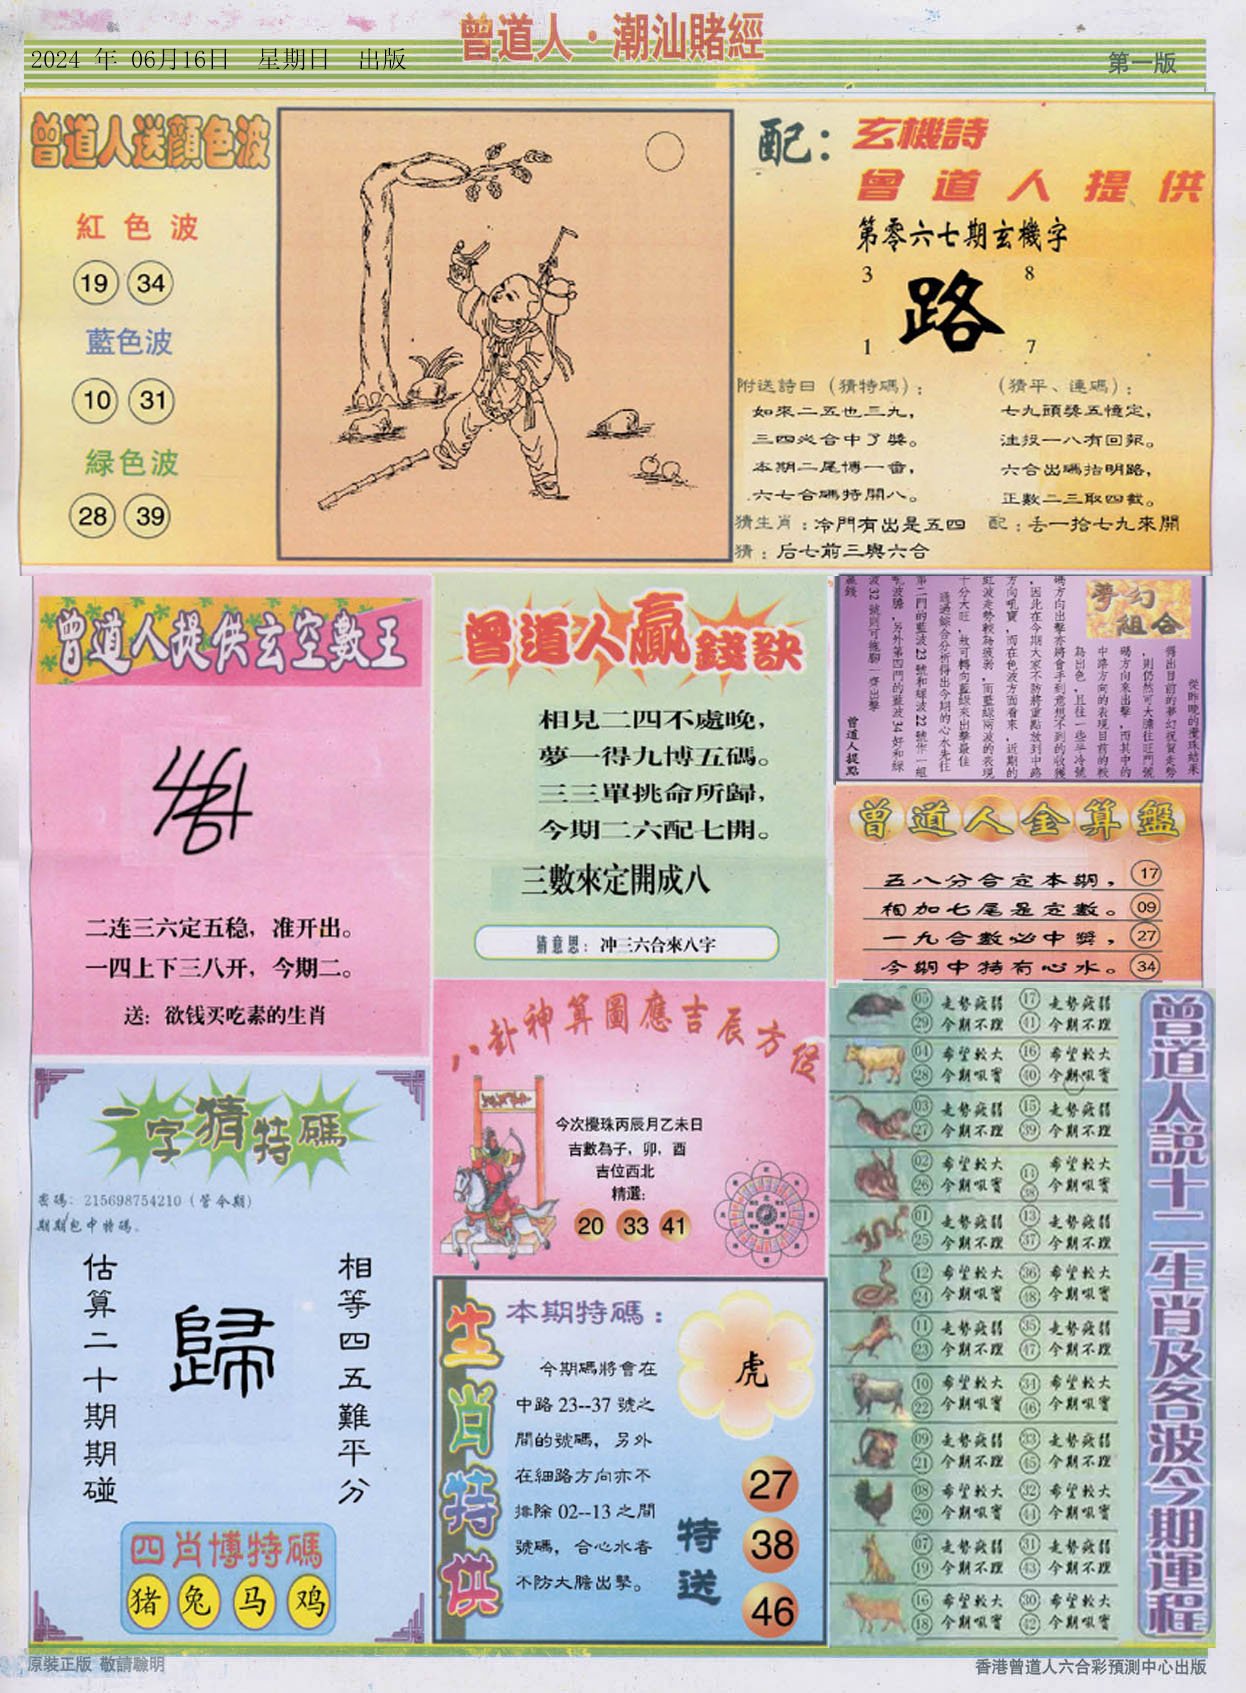 曾道人·潮汕賭經
2024 年 06月16日 星期日 出版
第一版
曾道人送顏色波
紅色波
19 34
藍色波
10 31
緑色波
28 39
配：玄機詩
曾道人提供
第零六七期玄機字
3 8
路
1 7
附送詩曰（猜特碼）：
如來二五也三九，
三四必合中了獎。
本期二尾博一番，
六七合碼特開八。
（猜平、連碼）：
七九頭獎五憶定，
注投一八有回報。
六合出碼指明路，
正數二三取四截。
猜生肖：冷門有出是五四
配：丢一拾七九來開
猜：后七前三與六合
曾道人提供玄空數王
二连三六定五稳，准开出。
一四上下三八开，今期二。
送：欲钱买吃素的生肖
曾道人贏錢訣
相見二四不處晚，
夢一得九博五碼。
三三單挑命所歸，
今期二六配七開。
三數來定開成八
猜意思：冲三六合來八字
夢幻組合
從昨晚的攪珠結果
得出目前的夢幻祝賀走勢
，則仍然可大膽往旺門號
碼方向來出擊，而其中的
中路方向的表現目前的較
為出色，且往一些半冷號
碼方向出擊亦將會手到意想不到的收獲
，因此在今期大家不防將重點放到中路
方向吼寶，而在色波方面看來，近期的
紅波走勢較為疲弱，而藍綠兩波的表現
十分大旺，故可轉向藍綠來出擊最佳
通過綜合分析得出今期的心水先往
第二門的藍波23號和綠波22號作一組
吼波膽，另外第四門的藍波34好和綠
波32號則可拖腳一齊出擊
贏錢
曾道人提點
曾道人金算盤
五八分合定本期，17
相加七尾是定數。09
一九合數必中獎，27
今期中特有心水。34
八卦神算圖應吉辰方位
今次攪珠丙辰月乙未日
吉數為子，卯，酉
吉位西北
精選：
20 33 41
一字猜特碼
密碼：215698754210（管今期）
期期包中特碼。
相等四五難平分
歸
估算二十期期碰
四肖博特碼
猪 兔 马 鸡
生肖特供
本期特碼：
今期碼將會在
中路23--37號之
間的號碼，另外
在細路方向亦不
排除02--13之間
號碼，合心水者
不防大膽出擊。
虎
特送
27
38
46
曾道人説十二生肖及各波今期運程
05 走勢疲弱 17 走勢疲弱
29 今期不理 41 今期不理
04 希望較大 16 希望較大
28 今期吼實 40 今期吼實
03 走勢疲弱 15 走勢疲弱
27 今期不理 39 今期不理
02 希望較大 14 希望較大
26 今期吼實 38 今期吼實
01 走勢疲弱 13 走勢疲弱
25 今期不理 37 今期不理
12 希望較大 36 希望較大
24 今期吼實 48 今期吼實
11 走勢疲弱 35 走勢疲弱
23 今期不理 47 今期不理
10 希望較大 34 希望較大
22 今期吼實 46 今期吼實
09 走勢疲弱 33 走勢疲弱
21 今期不理 45 今期不理
08 希望較大 32 希望較大
20 今期吼實 44 今期吼實
07 走勢疲弱 31 走勢疲弱
19 今期不理 43 今期不理
16 希望較大 30 希望較大
18 今期吼實 42 今期吼實
原裝正版 敬請聰明
香港曾道人六合彩預測中心出版